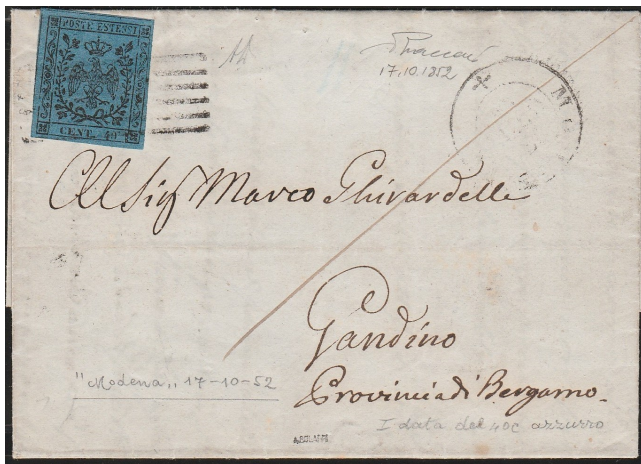 POSTE ESTENSI
CENT. 40
17.10.1852
Al Sig Marco Ghirardelle
Gandino
Provincia di Bergamo.
"Modena" 17-10-52
I data del 40c azzurro